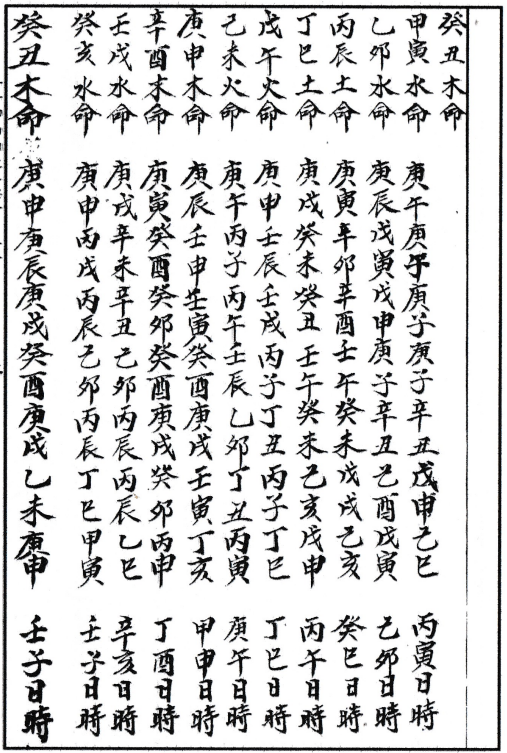 癸丑木命
甲寅水命 庚午庚子庚子庚子辛丑戊申己巳 丙寅日時
乙卯水命 庚辰戊寅戊申庚子辛丑己酉戊寅 己卯日時
丙辰土命 庚寅辛卯辛酉壬午癸未戊戌己亥 癸巳日時
丁巳土命 庚戌癸未癸丑壬午癸未己亥戊申 丙午日時
戊午火命 庚申壬辰壬戌丙子丁丑丙子丁巳 丁巳日時
己未火命 庚午丙子丙午壬辰乙卯丁丑丙寅 庚午日時
庚申木命 庚辰壬申壬寅癸酉庚戌壬寅丁亥 甲申日時
辛酉木命 庚寅癸酉癸卯癸酉庚戌癸卯丙申 丁酉日時
壬戌水命 庚戌辛未辛丑己卯丙辰丙辰乙巳 辛亥日時
癸亥水命 庚申丙戌丙辰己卯丙辰丁巳甲寅 壬子日時
癸丑木命 庚申庚辰庚戌癸酉庚戌乙未庚申 壬子日時